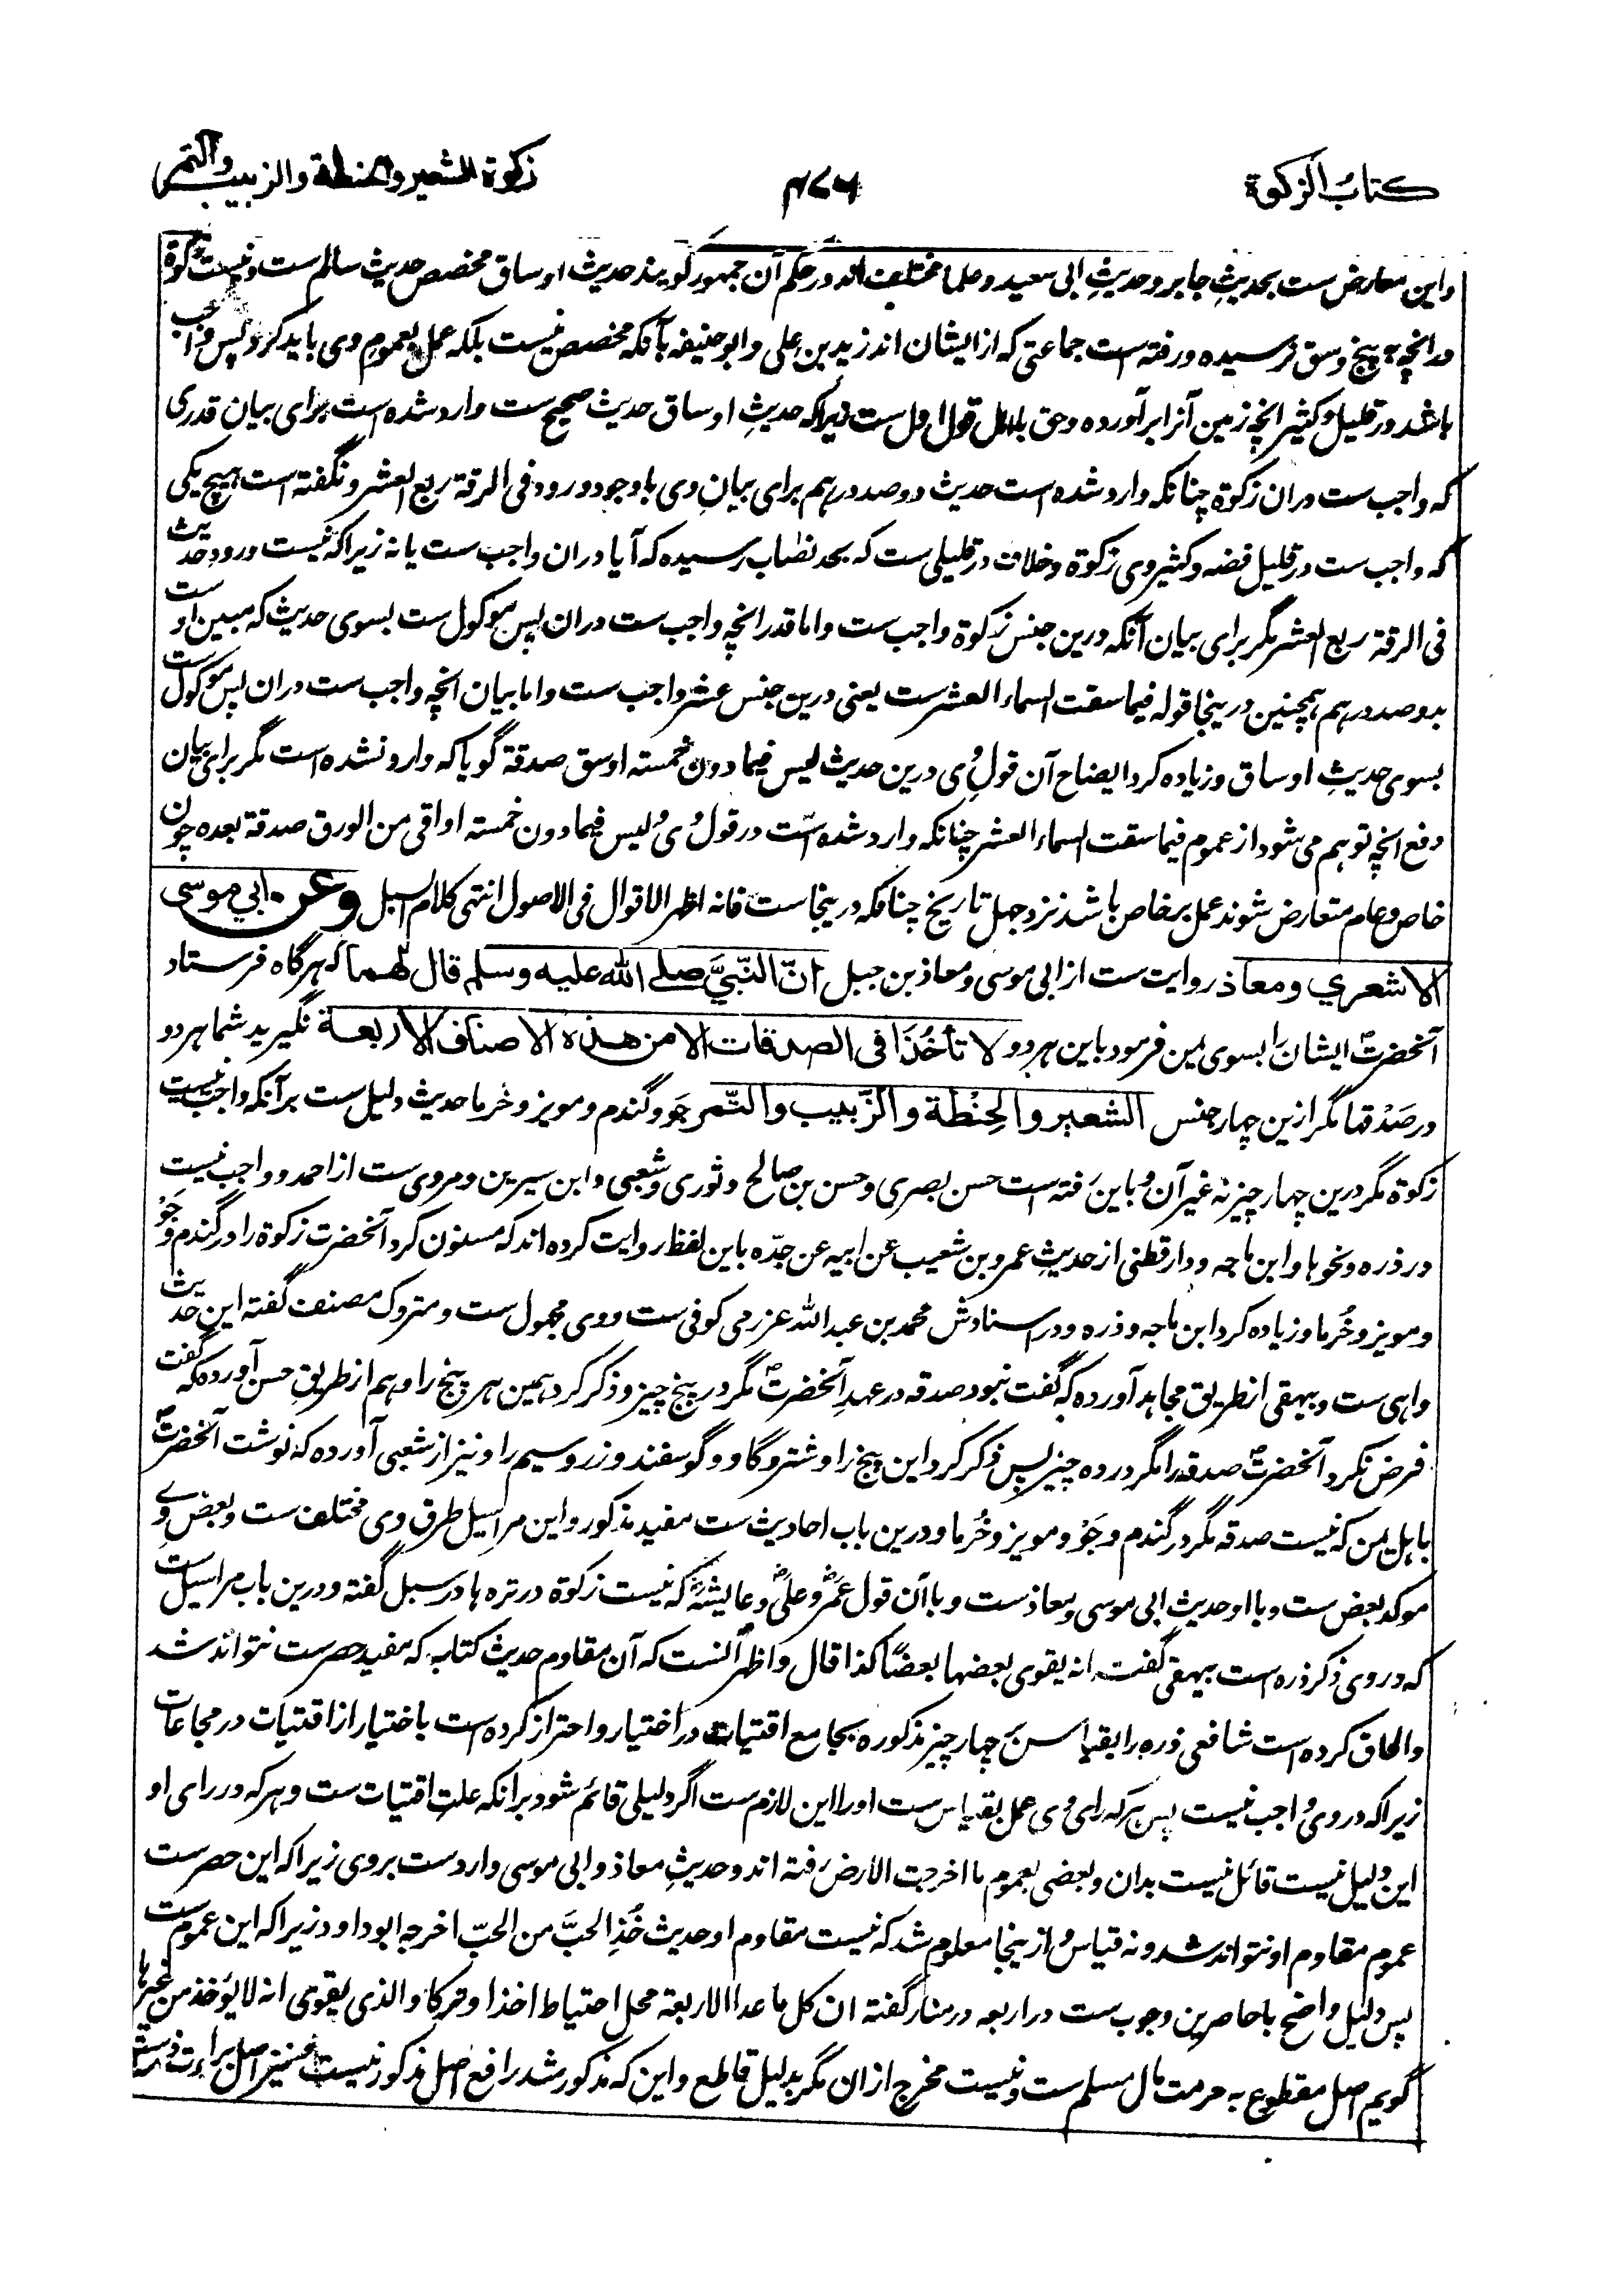 كتاب الزكوة
۴۷۶
زكوة الشعير والحنطة والزبيب والتمر
واین معارض ست بحدیثِ جابر و حدیثِ ابی سعید و علما مختلف اند در حکم آن جمهور گویند حدیث اوساق مخصص حدیث سالم ست و نیست زکوة
در انچه به پنج وسق نرسیده و رفته است جماعتی که از ایشان اند زید بن علی و ابوحنیفه بآنکه مخصص نیست بلکه عمل بعموم وی باید کرد پس واجب
باشد در قلیل و کثیر انچه زمین آنرا برآورده و حق باهل قول اول ست زیراکه حدیثِ اوساق حدیث صحیح ست وارد شده است برای بیان قدری
که واجب ست دران زکوة چنانکه وارد شده است حدیث دوصد درهم برای بیانِ وی باوجود ورود فی الرقة ربع العشر و نگفته است هیچ یکی
که واجب ست در قلیل فضه و کثیر وی زکوة و خلاف در قلیلی ست که بحد نصاب رسیده که آیا دران واجب ست یا نه زیراکه نیست ورود حدیث
فی الرقة ربع العشر مگر برای بیان آنکه درین جنس زکوة واجب ست و اما قدر انچه واجب ست دران پس موکول ست بسوی حدیث که مبین او ست
بدوصد درهم همچنین درینجا قوله فیما سقت السماء العشر ست یعنی درین جنس عشر واجب ست و اما بیان انچه واجب ست دران پس موکول ست
بسوی حدیثِ اوساق و زیاده کرد ایضاح آن قولِ وی درین حدیث لیس فیما دون خمسته اوسق صدقة گویا که وارد نشده است مگر برای بیان
دفع انچه توهم می شود از عموم فیما سقت السماء العشر چنانکه وارد شده است در قول وی و لیس فیما دون خمسته اواقی من الورق صدقة بعده چون
خاص و عام متعارض شوند عمل بر خاص باشد نزد جهل تاریخ چنانکه درینجا ست فانه اظهر الاقوال فی الاصول انتهی کلام السبل وعن ابي موسى
الاشعري ومعاذ روایت ست از ابی موسی و معاذ بن جبل انّ النّبيَّ صلے الله عليه وسلم قال لهما که هرگاه فرستاد
آنحضرتؐ ایشان را بسوی یمن فرمود باین هر دو لا تأخُذَا فى الصدقات الا من هذه الاصناف الاربعة نگیرید شما هر دو
در صَدْقها مگر ازین چهار جنس الشعير والحِنْطة والزّبيب والتّمر جَو و گندم و مویز و خرما حدیث دلیل ست برآنکه واجب نیست
زکوة مگر درین چهار چیز نه غیر آن و باین رَفته است حسن بصری و حسن بن صالح و ثوری و شعبی و ابن سیرین و مروی ست از احمد و واجب نیست
در ذره و نحوها و ابن ماجه و دارقطنی از حدیثِ عمرو بن شعیب عن ابیه عن جدّه باین لفظ روایت کرده اند که مسنون کرد آنحضرت زکوة را در گندم و جَوْ
و مویز و خُرما و زیاده کرد ابن ماجه و ذره و در اسنادش محمد بن عبدالله عزرمی کوفی ست و وی مجهول ست و متروک مصنف گفته این حدیث
واهی ست و بیهقی از طریق مجاهد آورده که گفت نبود صدقه در عهدِ آنحضرتؐ مگر در پنج چیز و ذکر کرد همین هر پنج را و هم از طریقِ حسن آورده که گفت
فرض نکرد آنحضرتؐ صدقه را مگر در ده چیز پس ذکر کرد این پنج را و شتر و گاو و گوسفند و زر و سیم را و نیز از شعبی آورده که نوشت آنحضرتؐ
باهل یمن که نیست صدقه مگر در گندم و جَوْ و مویز و خُرما و درین باب احادیث ست مفید مذکور و این مراسیل طرق وی مختلف ست و بعض وے
موکد بعض ست و با او حدیثِ ابی موسی و معاذ ست و با آن قول عمرؓ و علیؓ و عایشهؓ که نیست زکوة در تره ها در سبل گفته و درین باب مراسیل ست
که در وی ذکر ذره است بیهقی گفته انه یقوی بعضها بعضًا کذا قال و اظهر آنست که آن مقاوم حدیث کتاب که مفید حصر ست نتواند شد
و الحاق کرده است شافعی ذره را بقیاس بر چهار چیز مذکوره بجامع اقتیات در اختیار و احتراز کرده است باختیار از اقتیات در مجاعات
زیراکه در وی واجب نیست پس هرکه رای وی عمل بقیاس ست او را این لازم ست اگر دلیلی قائم شود برانکه علتِ اقتیات ست و هرکه در رای او
این دلیل نیست قائل نیست بدان و بعضی بعموم ما اخرجت الارض رَفته اند و حدیثِ معاذ و ابی موسی وارد ست بروی زیراکه این حصر ست
عموم مقاوم او نتواند شد و نه قیاس و ازینجا معلوم شد که نیست مقاوم او حدیث خُذِ الحبَّ من الحبِّ اخرجه ابوداود زیراکه این عموم ست
پس دلیل واضح با حاصرین وجوب ست در اربعه در منار گفته ان کل ما عدا الاربعة محل احتیاط اخذا و ترکا و الذی یقوی انه لا یؤخذ من غیرها
گویم اصل مقطوع به حرمت مال مسلم ست و نیست مخرج ازان مگر بدلیل قاطع و این که مذکور شد رافع اصل مذکور نیست و نیز اصل براءت ذمه ست